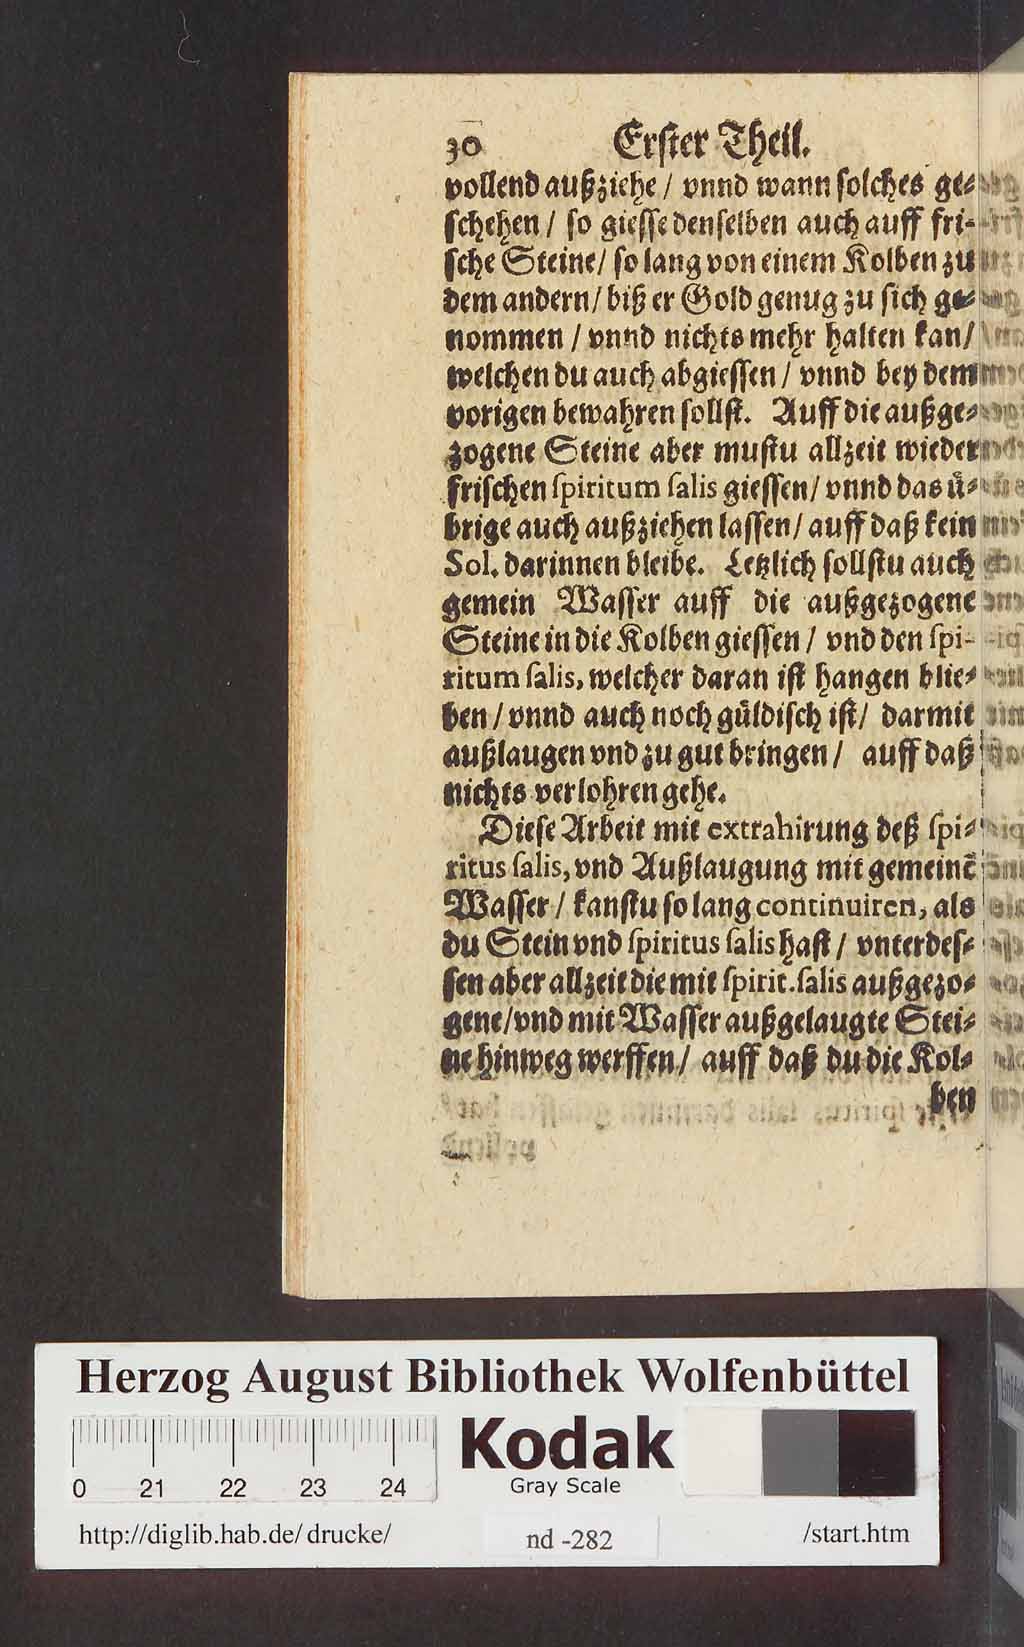 30 Erster Theil.
vollend außziehe / vnnd wann solches ge-
schehen / so giesse denselben auch auff fri-
sche Steine / so lang von einem Kolben zu
dem andern / biß er Gold genug zu sich ge-
nommen / vnnd nichts mehr halten kan /
welchen du auch abgiessen / vnnd bey dem
vorigen bewahren sollst. Auff die außge-
zogene Steine aber mustu allzeit wieder
frischen spiritum salis giessen / vnnd das ü-
brige auch außziehen lassen / auff daß kein
Sol. darinnen bleibe. Letzlich sollstu auch
gemein Wasser auff die außgezogene
Steine in die Kolben giessen / vnd den spi-
ritum salis, welcher daran ist hangen blie-
ben / vnnd auch noch güldisch ist / darmit
außlaugen vnd zu gut bringen / auff daß
nichts verlohren gehe.
Diese Arbeit mit extrahirung deß spi-
ritus salis, vnd Außlaugung mit gemeinē
Wasser / kanstu so lang continuiren, als
du Stein vnd spiritus salis hast / vnterdes-
sen aber allzeit die mit spirit. salis außgezo-
gene / vnd mit Wasser außgelaugte Stei-
ne hinweg werffen / auff daß du die Kol-
ben
Herzog August Bibliothek Wolfenbüttel
Kodak
Gray Scale
0 21 22 23 24
http://diglib.hab.de/drucke/ nd -282 /start.htm